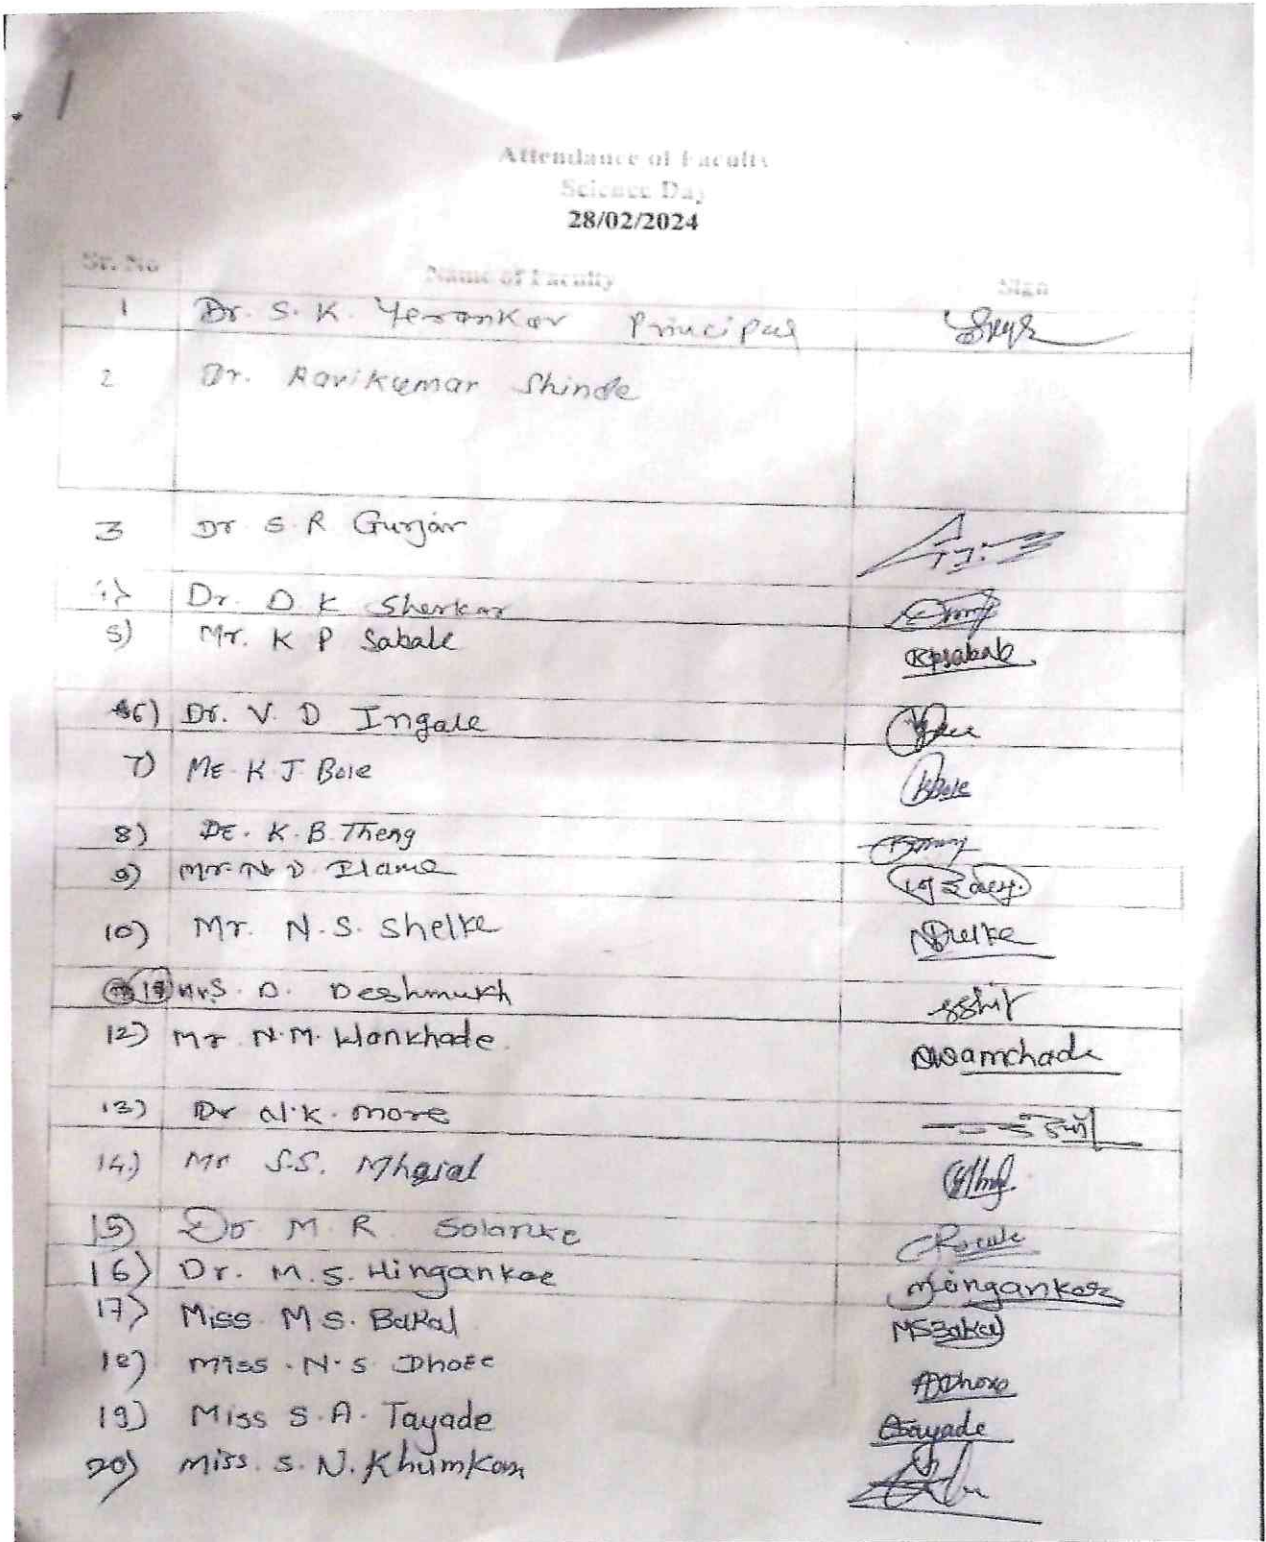 Attendance of Faculty
Science Day
28/02/2024
Sr. No Name of Faculty Sign
1 Dr. S. K. Yerankar Principal
2 Dr. Ravikumar Shinde
3 Dr S. R Gurjar
4) Dr. D K Sherkar
5) Mr. K P Sabale Kpsabale
6) Dr. V. D Ingale
7) Mr. K J Bole KBole
8) Dr. K. B. Theng
9) Mr. N D. Ilame
10) Mr. N. S. Shelke
D. Deshmukh
12) Mr N. M. Wankhade
13) Dr N. K. more
14.) Mr S.S. Mhaisal
15) Dr M R
16) Dr. M. S. Hingankar Hingankar
17) Miss. M S. Bakal MSBakal
18) Miss. N. S Dhore Dhore
19) Miss S. A. Tayade Tayade
20) Miss. S. N. Khumkar